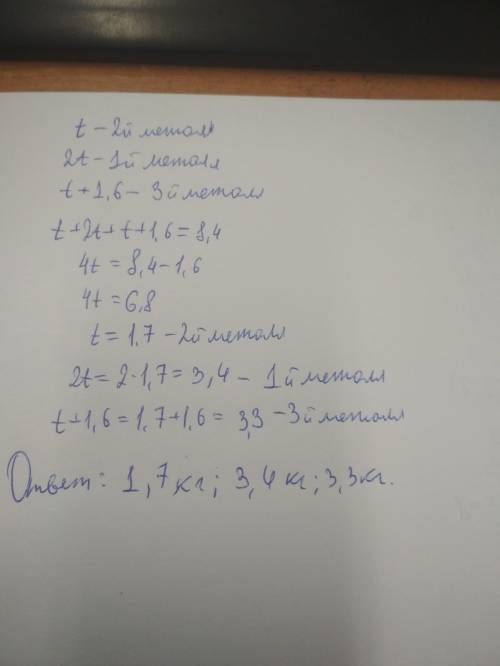 t - 2й металл
2t - 1й металл
t + 1,6 - 3й металл
t + 2t + t + 1,6 = 8,4
4t = 8,4 - 1,6
4t = 6,8
t = 1,7 - 2й металл
2t = 2 · 1,7 = 3,4 - 1й металл
t + 1,6 = 1,7 + 1,6 = 3,3 - 3й металл
Ответ: 1,7 кг; 3,4 кг; 3,3 кг.